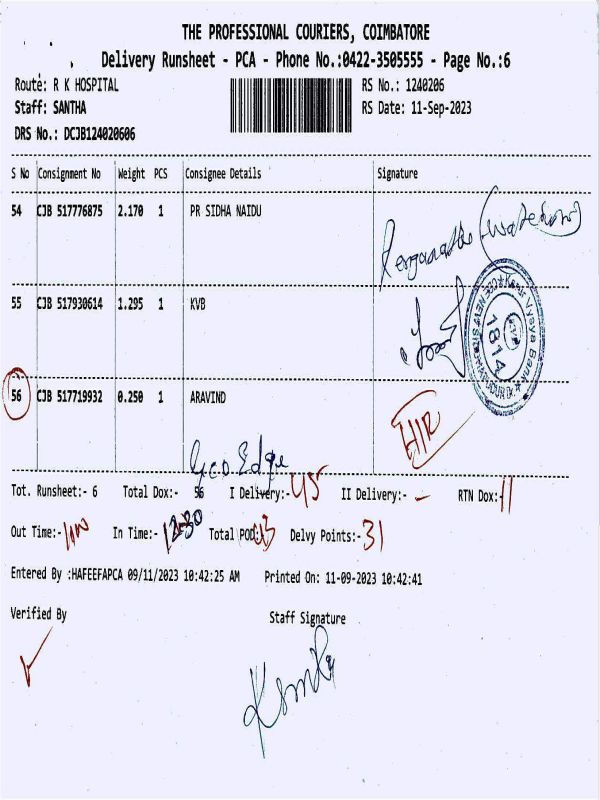 THE PROFESSIONAL COURIERS, COIMBATORE
Delivery Runsheet - PCA - Phone No.:0422-3505555 - Page No.:6
Route: R K HOSPITAL RS No.: 1240206
Staff: SANTHA RS Date: 11-Sep-2023
DRS No.: DCJB124020606
S No Consignment No Weight PCS Consignee Details Signature
54 CJB 517776875 2.170 1 PR SIDHA NAIDU
55 CJB 517930614 1.295 1 KVB
Karur Vysya Bank
KVB
1814
56 CJB 517719932 0.250 1 ARAVIND
Geo Edge
Tot. Runsheet:- 6 Total Dox:- 56 I Delivery:- 45 II Delivery:- - RTN Dox:- 11
Out Time:- In Time:- 12-30 Total POD:- Delvy Points:- 31
Entered By :HAFEEFAPCA 09/11/2023 10:42:25 AM Printed On: 11-09-2023 10:42:41
Verified By Staff Signature